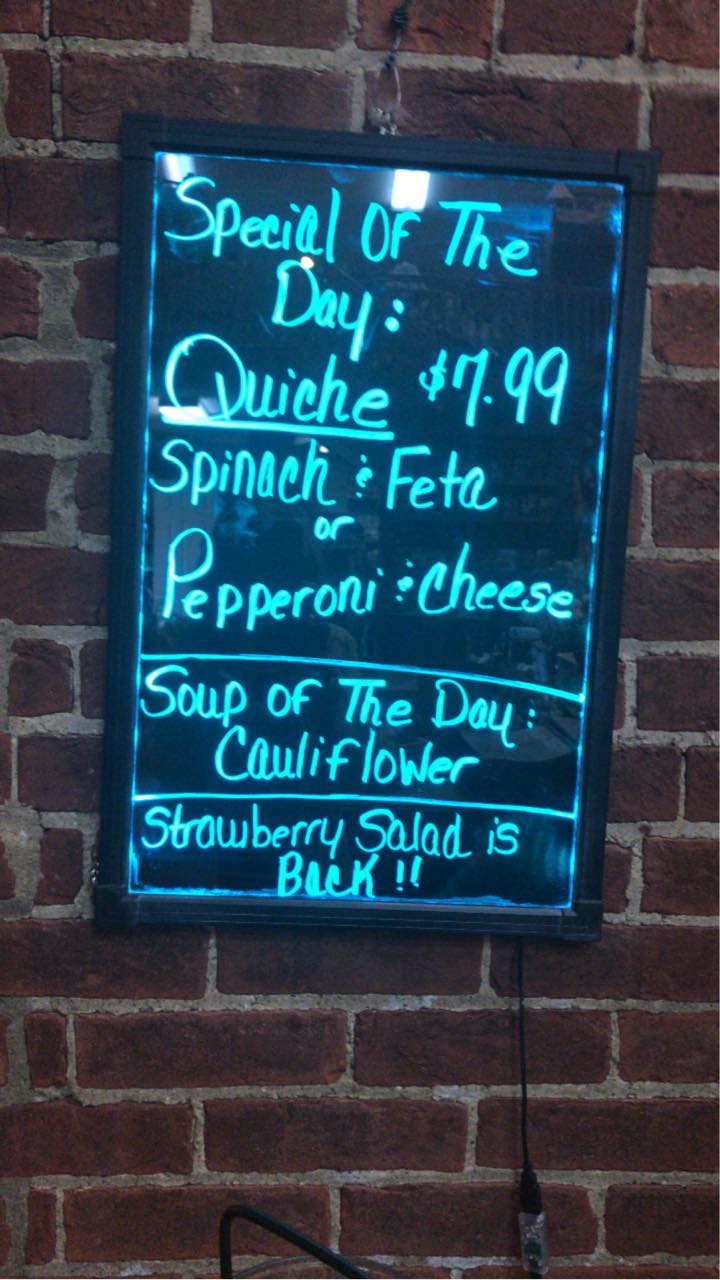 Special Of The
Day:
Quiche $7.99
Spinach & Feta
or
Pepperoni & Cheese
Soup of The Day:
Cauliflower
Strawberry Salad is
Back !!